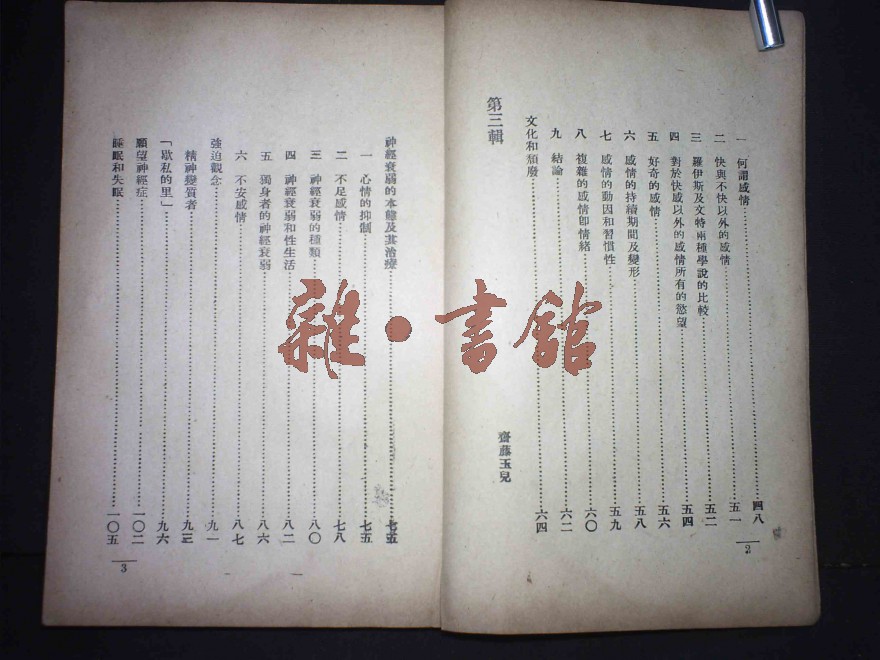 一　何謂感情 四八
二　快與不快以外的感情 五一
三　羅伊斯及文特兩種學說的比較 五二
四　對於快感以外的感情所有的慾望 五四
五　好奇的感情 五六
六　感情的持續期間及變形 五八
七　感情的動因和習慣性 五九
八　複雜的感情卽情緒 六〇
九　結論 六二
文化和頹廢 六四
第三輯　齋藤玉兒
2
神經衰弱的本態及其治療 七五
一　心情的抑制 七五
二　不足感情 七八
三　神經衰弱的種類 八〇
四　神經衰弱和性生活 八二
五　獨身者的神經衰弱 八六
六　不安感情 八七
強迫觀念 九一
精神變質者 九三
「歇私的里」 九六
願望神經症 一〇二
睡眠和失眠 一〇五
3
雜·書館